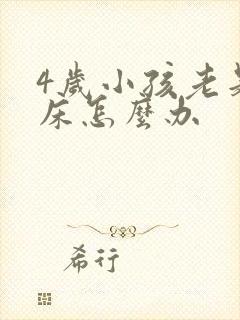 4歲小孩老是
床怎麼办
希行